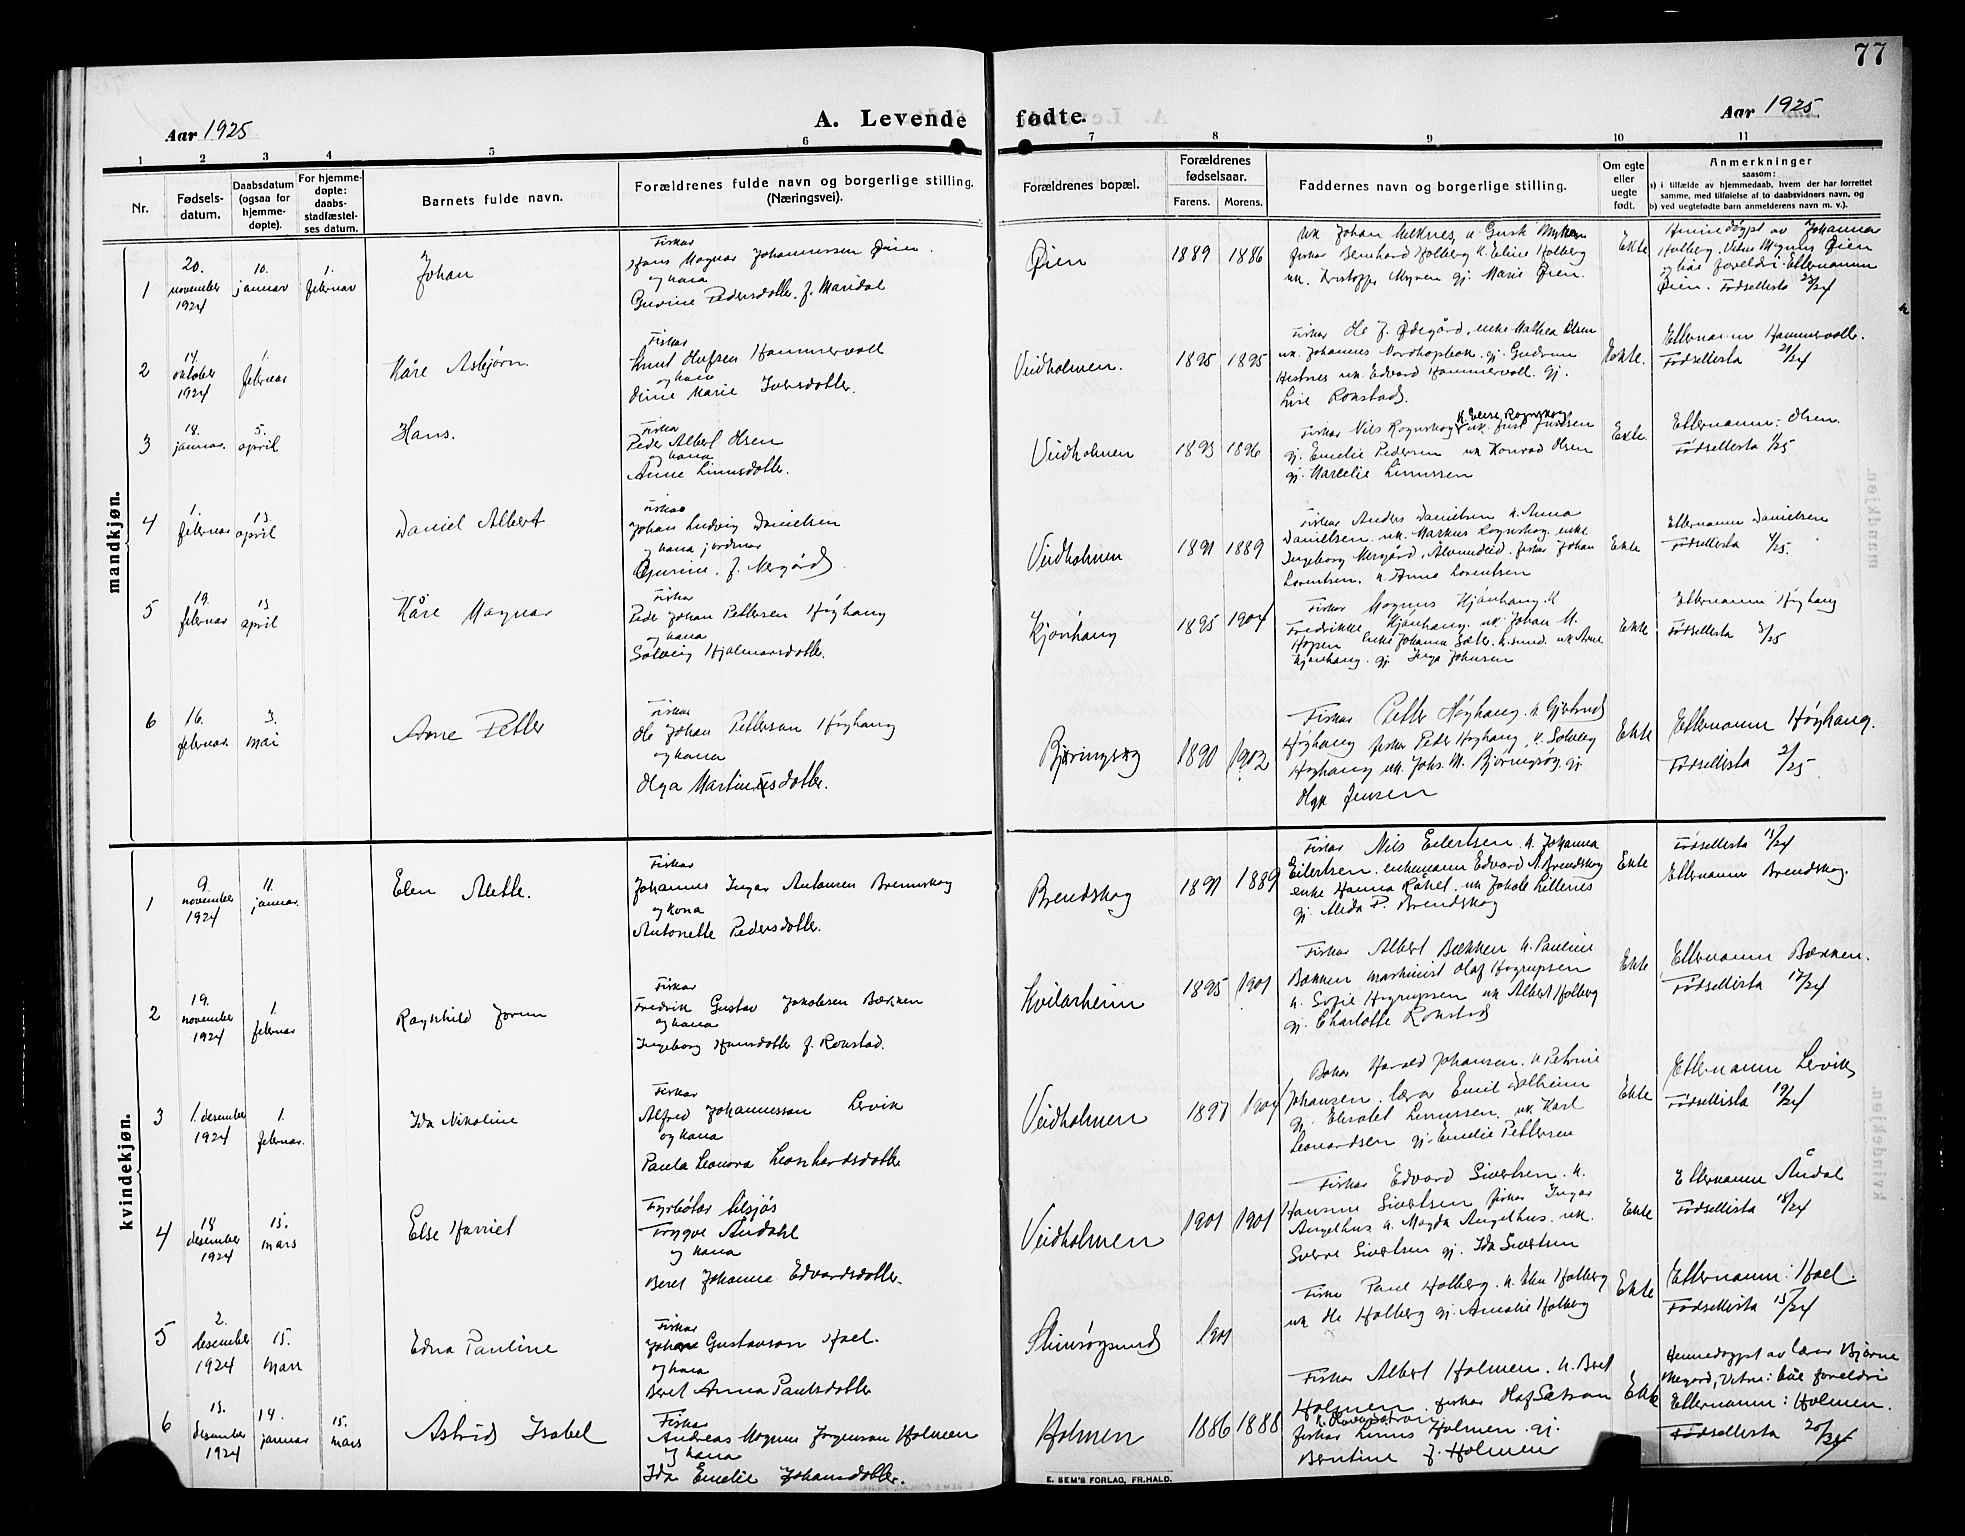 77
Aar 1925
A. Levende fødte.
Aar 1925
1 2 3 4 5 6 7 8 9 10 11
Nr.
Fødsels-
datum.
Daabsdatum
(ogsaa for
hjemme-
døpte).
For hjemme-
døpte:
daabs-
stadfæstel-
ses datum.
Barnets fulde navn.
Forældrenes fulde navn og borgerlige stilling.
(Næringsvei).
Forældrenes bopæl.
Forældrenes
fødselsaar.
Farens. Morens.
Faddernes navn og borgerlige stilling.
Om egte
eller
uegte
født.
Anmerkninger
saasom:
a) i tilfælde av hjemmedaab, hvem der har forrettet
samme, med tilføielse af to daabsvidners navn, og
b) ved uegtefødte barn anmelderens navn m. v.).
mandkjøn.
1
20.
november
1924
10.
januar
1.
februar
Johan
Fiskar
Hans Magnar Johannessen Øien.
og kona
Gurine Pedersdotter. f. Maridal
Øien
1889 1886
fiskar Bernhard Holberg k. Eline Holberg
uk. Kristoffer Myren gj Marie Øien.
Ekte
Heimedøypt av Johanna
Holberg. Vitne Magnus Øien
og båe foreldri. Etternamn
Øien. Fødsellista 23/24
2
14.
oktober
1924
1.
februar
Kåre Asbjørn.
Fiskar
Knut Olufsen Hammervoll
og kona
Oline Marie Iversdotter.
Veidholmen.
1895 1895
Fiskar Ole J. Ødegård, enke Mathea Olsen
uk. Johannes Nordhopbak. gj. Gudrun
Hestnes uk. Edvard Hammervoll. gj.
Lise Ronstad.
Ekte.
Etternamn Hammervoll.
Fødsellista 21/24
3
18.
januar.
5.
april
Hans.
Fiskar
Peder Albert Olsen
og kona
Anne Linusdotter.
Veidholmen
1893 1896
k. Elise Rognskog
Fiskar Nils Rognskog uk. Just Justsen
gj. Emelie Pedersen uk Konrad Olsen
gj. Marcelie Linussen
Ekte.
Etternamn: Olsen.
Fødsellista 1/25
4
1.
februar
13
april
Daniel Albert
Fiskar
Johan Ludvig Danielsen
og kona jordmor
Gjurine. f. Nergård.
Veidholmen
1891 1889
Fiskar Anders Danielsen k. Anna
Danielsen. uk. Markus Rognskog. enke
Ingeborg Nergård, Alvundeid. fiskar Johan
Lorentsen. k. Anna Lorentsen
Ekte
Etternamn Danielsen
Fødsellista 4/25.
5
19.
februar
13
april
Kåre Magnar
Fiskar
Peder Johan Pettersen Høyhang
og kona
Solveig Hjalmarsdotter.
Kjønhaug
1895 1904
Fiskar Magnus Kjønhaug. k
Fredrikke Kjønhaug. uk. Johan M.
Hopen enke Johanna Sæter. K.sund. uk Arne
Kjønhaug. gj Inga Johnsen
Ekte
Etternamn Høyhang
Fødsellista 3/25
6
16.
februar.
3.
mai
Arne Petter
Fiskar
Ole Johan Petterson Høyhang
og kona
Olga Martinusdotter.
Bjøringsøg
1890 1902
Fiskar Petter Høyhang. k Gjertrud
Høyhang fiskar Peder Høyhang, k. Solveig
Høyhang uk. Johs. M. Bjøringsøg. gj.
Olga Jensen
Ekte
Etternamn Høyhang.
Fødsellista 2/25.
kvindekjøn.
1
9.
november
1924
11.
januar.
Elen Alette.
Fiskar
Johannes Ingar Antonsen Brennskog
og kona
Antonette Pedersdotter.
Brendskog
1891 1889
Fiskar Nils Eilertsen. k. Johanna
Eilertsen. enkemann Edvard A Brendskog
enke Hanna Råket. uk Jakob Lillenes
gj. Alida P. Brendskog
Ekte
Fødsellista 18/24
Etternamn Brendskog.
2
19.
november
1924
1.
februar
Ragnhild Jorun
Fiskar
Fredrik Gustav Jakobsen Bækken
og kona
Ingeborg Hansdotter f. Ronstad.
Kvilarheim
1895 1901
Fiskar Albert Bækken k. Pauline
Bækken maskinist Olaf Hagrupsen
k. Sofie Hagrupsen uk Albert Holberg
gj. Charlotte Ronstad
Ekte
Etternamn Bækken.
Fødsellista 17/24
3
1. desember
1924
1.
februar.
Ida Nikoline
Fiskar
Alfred Johannessen Lervik
og kona
Paula Leonora Leonhardsdotter
Veidholmen
1897 1904
Bakar Harald Johansen. k Petrine
Johansen. lærar Emil Solheim
gj. Elisabet Linussen. uk. Karl
Leonardsen gj. Emelie Pettersen
Ekte
Etternamn Lervik
Fødsellista 19/24
4
18
desember
1924
15.
mars
Else Harriet
Fyrbøtar tilsjøs
Trygve Aandahl
og kona
Beret Johanna Edvardsdotter.
Veidholmen
1901 1901
Fiskar Edvard Sivertsen. k.
Hansine Sivertsen fiskar Ingar
Angelhus k. Magda Angelhus. uk.
Sverre Sivertsen gj. Ida Sivertsen
Ekte
Etternamn Åndal
Fødsellista 18/24
5
2.
desember
1924
15.
mars
Edna Pauline
Fiskar
Johan Gustavson Hoel.
og kona
Beret Anna Paulsdotter
Steinsøysund
1901
Fiskar Paul Holberg. k. Elen Holberg
uk Ole Holberg gj. Amalie Holberg
Ekte
Etternamn: Hoel.
Fødsellista 15/24
6
13.
desember
1924
14.
januar
15.
mars
Astrid Isabel
Fiskar
Andreas Magnus Jørgenson Holmen
og kona
Ida Emelie Johansdotter.
Holmen
1886 1888
Fiskar Albert Holmen. k. Beret
Holmen. fiskar Olaf Sætran
fiskar Linus Holmen. gj.
Bentine J. Holmen
Ekte
Heimedøypt av lærar Bjarne
Megard, Vitne: båe foreldri
Etternamn: Holmen.
Fødsellista 20/24
E. SEM'S FORLAG, FR.HALD.